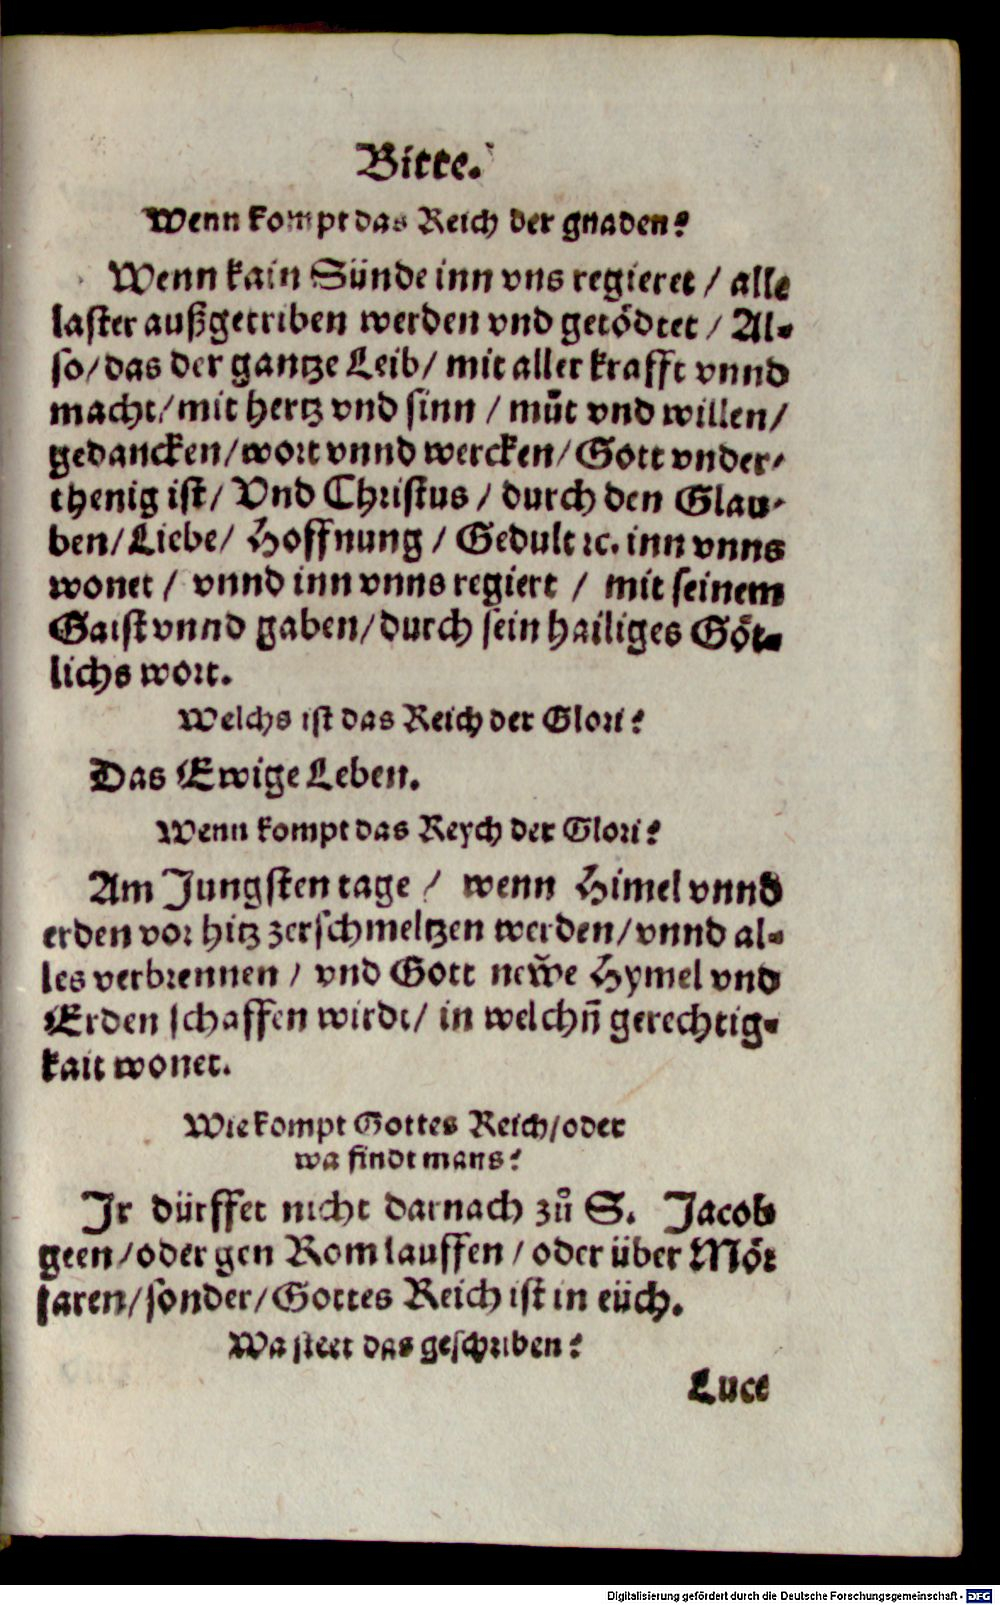 Bitte.
Wenn kompt das Reich der gnaden?
Wenn kain Sünde inn vns regieret / alle
laster außgetriben werden vnd getödtet / Al-
so / das der gantze Leib / mit aller krafft vnnd
macht / mit hertz vnd sinn / můt vnd willen /
gedancken / wort vnnd wercken / Gott vnder-
thenig ist / Vnd Christus / durch den Glau-
ben / Liebe / Hoffnung / Gedult ꝛc. inn vnns
wonet / vnnd inn vnns regiert / mit seinem
Gaist vnnd gaben / durch sein hailiges Göt-
lichs wort.
Welchs ist das Reich der Glori?
Das Ewige Leben.
Wenn kompt das Reych der Glori?
Am Jungsten tage / wenn Himel vnnd
erden vor hitz zerschmeltzen werden / vnnd al-
les verbrennen / vnd Gott new̃e Hymel vnd
Erden schaffen wirdt / in welchñ gerechtig-
kait wonet.
Wie kompt Gottes Reich / oder
wa findt mans?
Jr dürffet nicht darnach zů S. Jacob
geen / oder gen Rom lauffen / oder über Mör
faren / sonder / Gottes Reich ist in eüch.
Wa steet das geschriben?
Luce
Digitalisierung gefördert durch die Deutsche Forschungsgemeinschaft - DFG